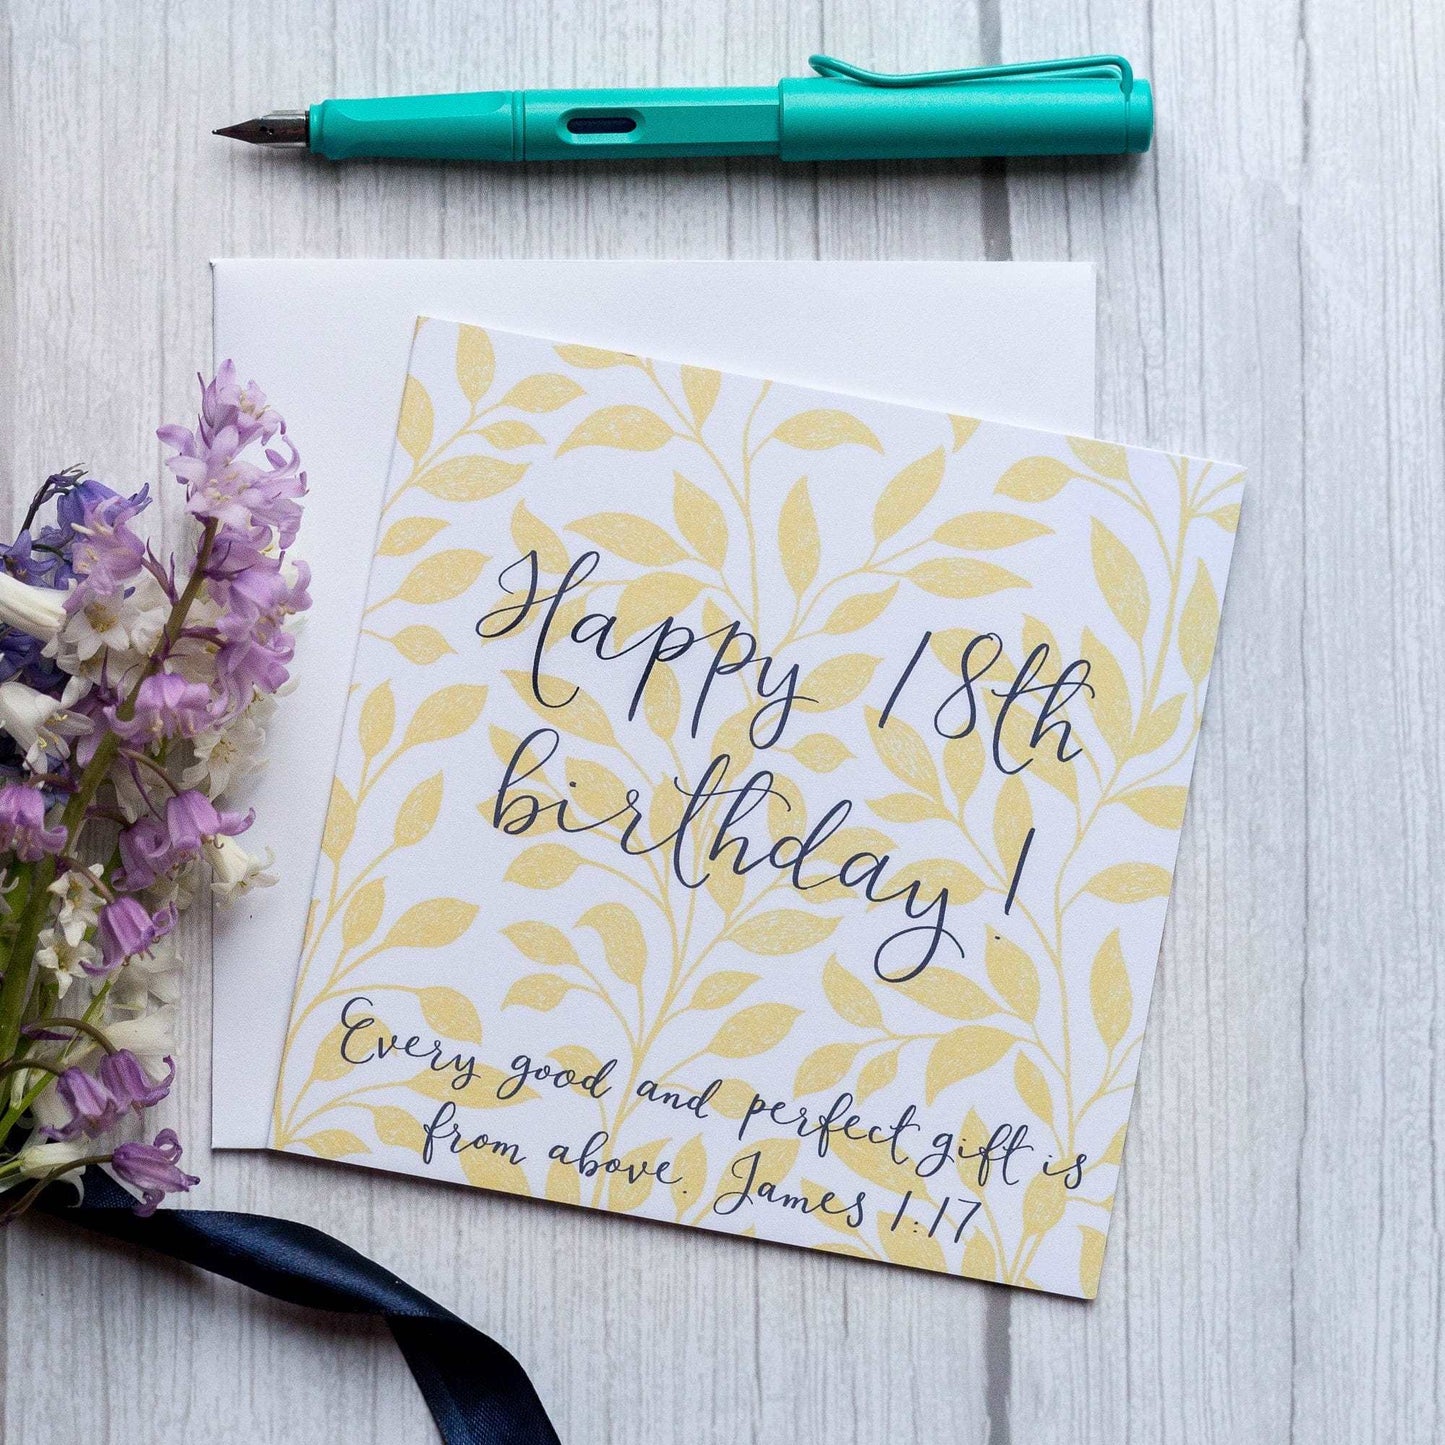 Happy 18th
birthday!
Every good and perfect gift is
from above. James 1:17